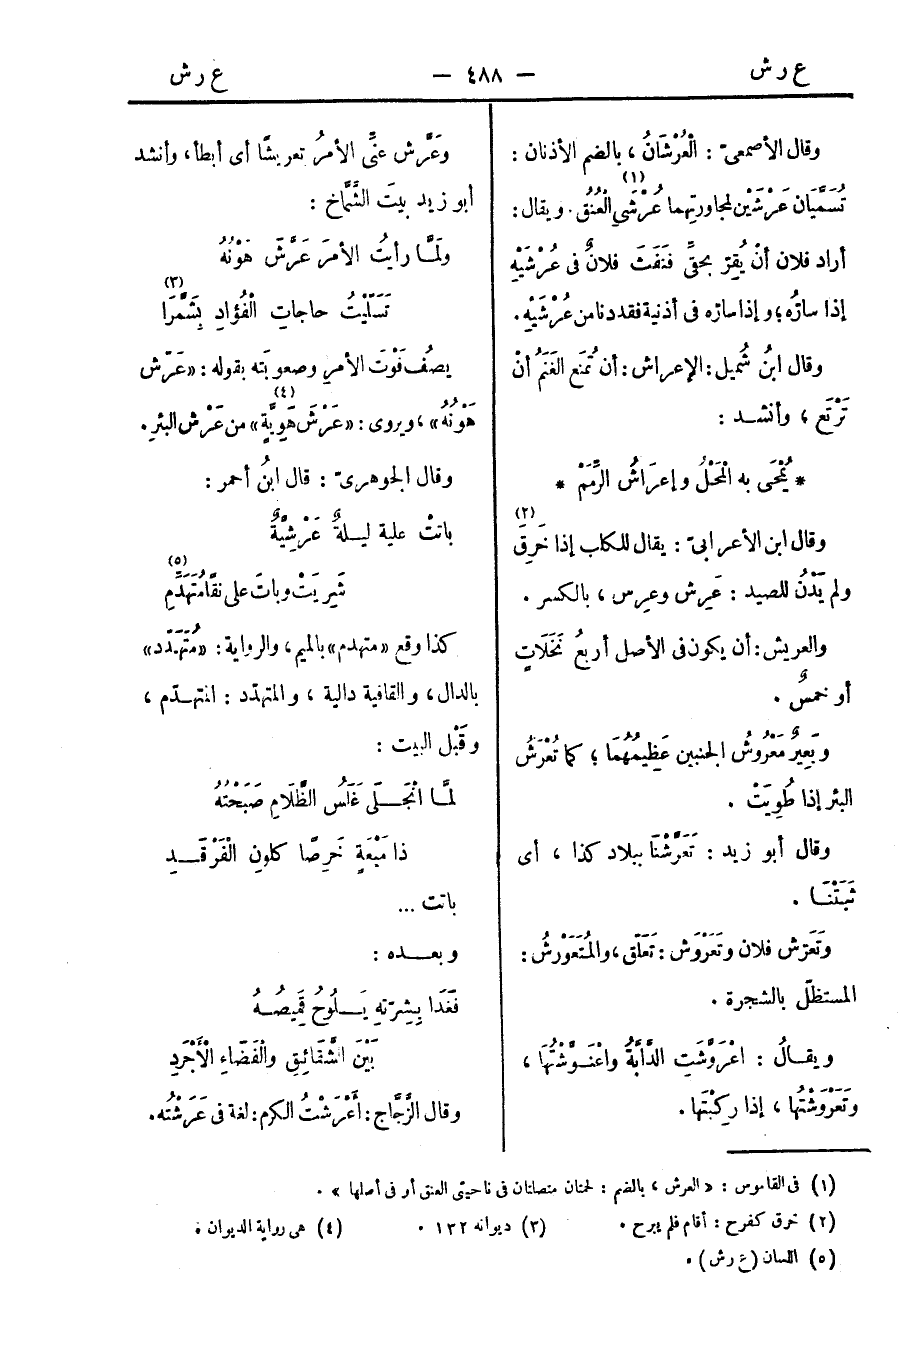 ع رش — ٤٨٨ — ع رش
وقال الأصمعىّ : الْعُرْشَانُ ، بالضم الأذنان :
تُسَمَّيَان عَرْشَيْن لمجاورتهما عُرْشَىِ الْعُنُق (١) . ويقال :
أراد فلان أنْ يُقِرّ بحقىِّ فَنَفَثَ فلانٌ فى عُرْشَيْهِ
إذا سارَّه ؛ وإذا سارّه فى أذنيه فقد دنا من عُرْشَيْهِ .
وقال ابنُ شُميل : الإعراش : أن تُمنَع الغَنَمُ أنْ
تَرْتَع ، وأنشـد :
* يُمْحَى به الْمَحْلُ وإعرَاشُ الرِّمَمْ *
وقال ابن الأعرابىّ : يقال للكلب إذا خَرِقَ (٢)
ولم يَدْنُ للصيد : عَرِش وعرِس ، بالكسر .
والعريش : أن يكون فى الأصل أربعُ نَخَلَاتٍ
أو خمسٌ .
وبَعِيرٌ مَعْرُوشُ الجنبين عَظِيمُهُمَا ؛ كما تُعْرَشُ
البئر إذا طُوِيَتْ .
وقال أبو زيد : تَعَرَّشْنَا ببلاد كذا ، أى
ثَبَتْنَـا .
وتَعَرّش فلان وتَعَرْوَش : تَعَلّق ، والمُتَعَرْوِشُ :
المستظلّ بالشجرة .
ويقـالُ : اعْرَوَّشَتِ الدَّابَّةُ واعْنَـوَّشْتُهَا ،
وتَعَرْوَشْتُها ، إذا ركِبْتَها .
وعَرَّش عنِّى الأمرُ تعريشًا أى أبطأ ، وأنشد
أبو زيد بيتَ الشَّمَّاخ :
ولَمَّـا رأيتُ الأمرَ عَرَّشَ هَوْنُهُ
تَسَلَّيْتُ حاجاتِ الْفُؤادِ بِشَمَّرَا (٣)
يصفُ فَوْتَ الأمرِ وصعوبَته بقوله : «عَرّش
هَوْنُهُ» ، ويروى : «عَرْشَ هَوِيَّةٍ (٤)» من عَرْش البئرِ .
وقال الجوهرىّ : قال ابنُ أحمر :
باتتْ علية ليـلةٌ عَرْشِيَّةٌ
شَرِيَتْ وباتَ على نقًا مُتَهَدِّمِ (٥)
كذا وقع «متهدم» بالميم ، والرواية : «مُتَهَدِّد»
بالدال ، والقافية دالية ، والمتهدّد : المتهـدّم ،
وقَبْل البيت :
لمَّـا انْجَـلَى غَلَسُ الظَّلَامِ صَبَحْتُهُ
ذا مَيْعَةٍ خَرِصًا كلونِ الْفَرْقَـدِ
باتت ...
وبعـده :
فَغَدَا بِشِرّتهِ يَـلُوحُ قَمِيصُـهُ
بَيْنَ الشَّقَائِقِ والْفَضَاءِ الْأَجْرَدِ
وقال الزَّجَّاج : أَعْرَشْتُ الكرم : لغة فى عَرَشْتُه .
(١) فى القاموس : « العرش ، بالضم : لحمتان متصلتان فى ناحيتى العنق أو فى أصلها » .
(٢) خرق كفرح : أقام فلم يبرح . (٣) ديوانه ١٣٢ . (٤) هى رواية الديوان .
(٥) اللسان (ع رش) .